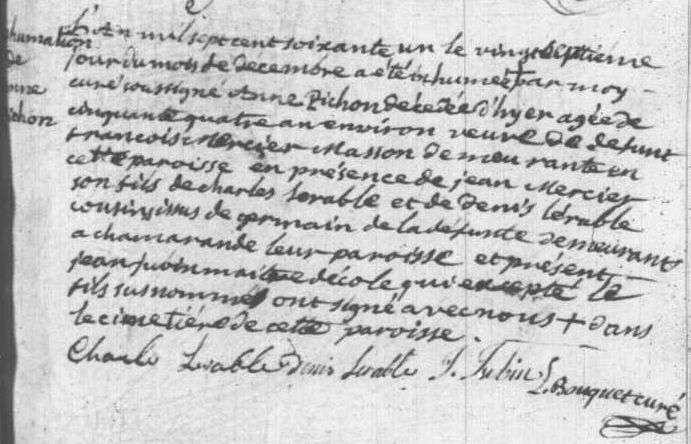 humation
de
nne
ichon
L'An mil sept cent soixante un le vingt septieme
jour du mois de decembre a été inhumée + par moy
curé soussigné Anne Pichon décédée d'hyer agée de
cinquante quatre an environ veuve de defunt
francois Mercier Masson demeurante en
cette paroisse en présence de jean Mercier
son fils de charles Lerable et de Denis lérable
cousins issus de germain de la défunte demeurants
a chamarande leur paroisse et présent
jean jubin maitre décole qui excepté le
fils susnommé ont signé avec nous + dans
le cimetiére de cette paroisse.
Charle Lerable Denis Lerable J. Jubin
L. Bouquet curé